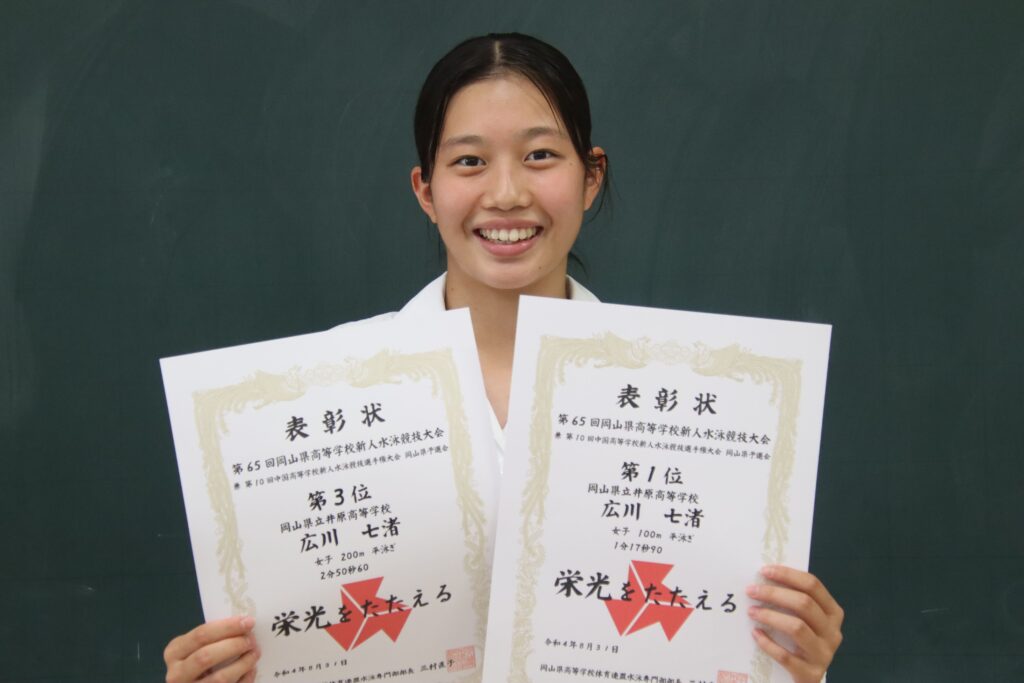 表彰状
第65回岡山県高等学校新人水泳競技大会
兼 第10回中国高等学校新人水泳競技選手権大会 岡山県予選会
第3位
岡山県立井原高等学校
広川 七渚
女子 200m 平泳ぎ
2分50秒60
栄光をたたえる
令和4年8月31日
体育連盟水泳専門部部長 三村直子
表彰状
第65回岡山県高等学校新人水泳競技大会
兼 第10回中国高等学校新人水泳競技選手権大会 岡山県予選会
第1位
岡山県立井原高等学校
広川 七渚
女子 100m 平泳ぎ
1分17秒90
栄光をたたえる
令和4年8月31日
岡山県高等学校体育連盟水泳専門部部長